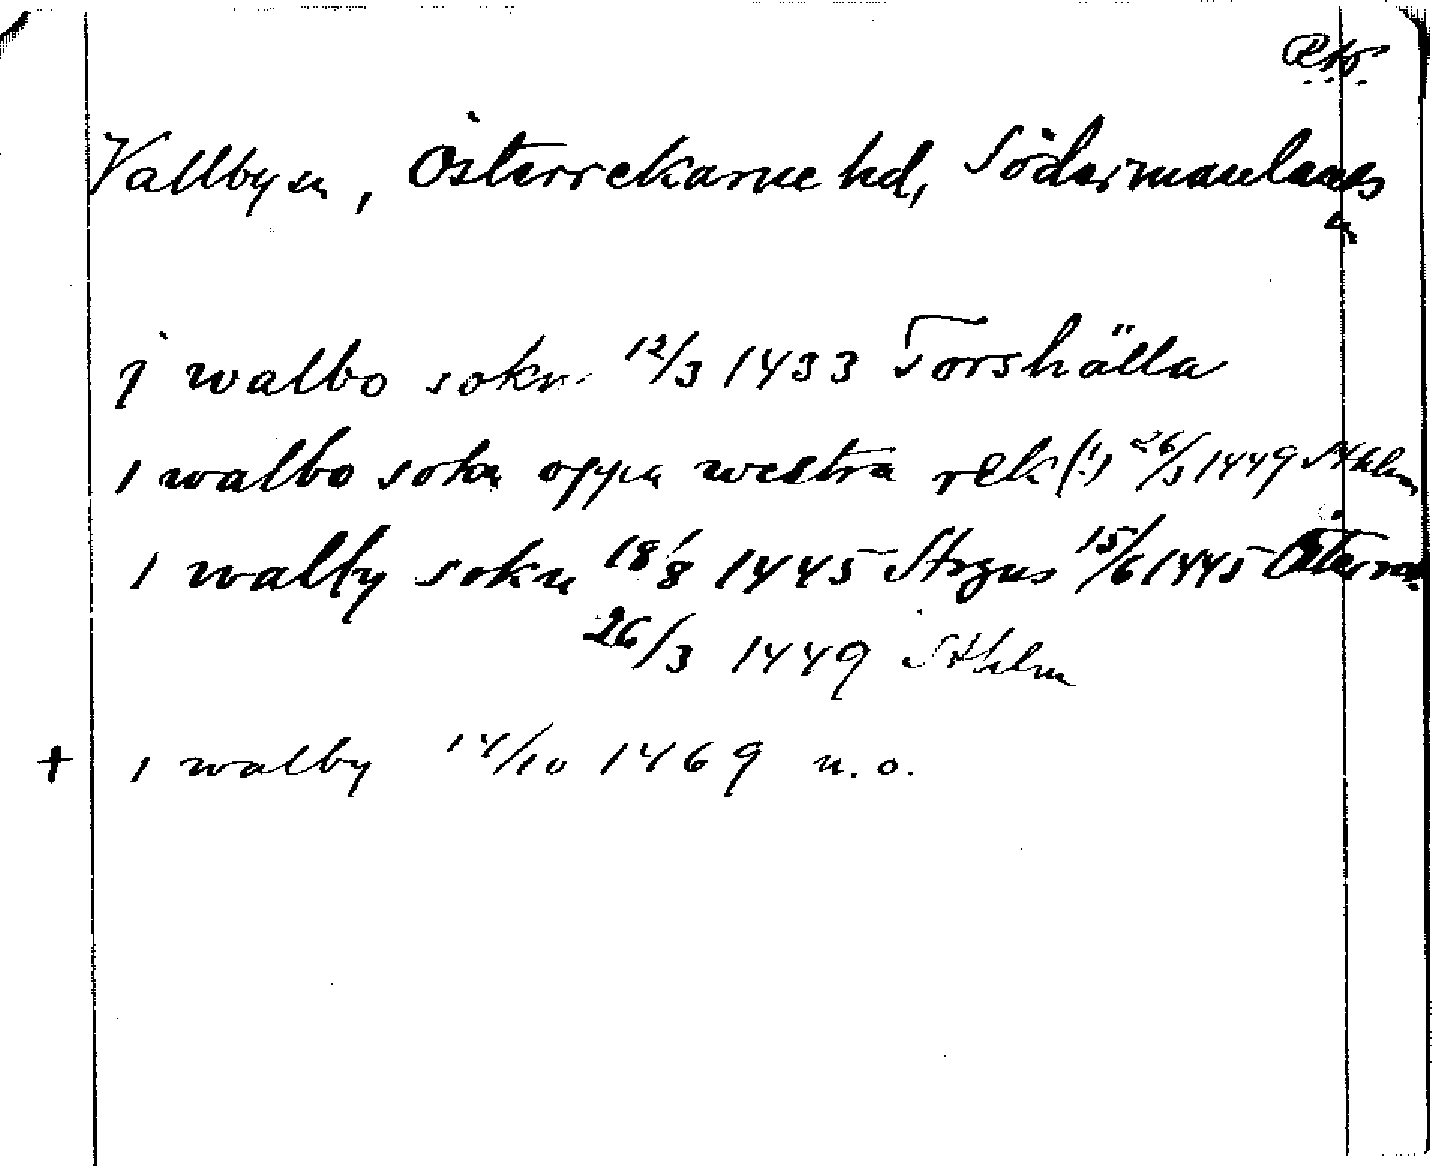 Vallby sn, Österrekarne hd, Södermanlands
n
j walbo sokn 12/3 1433 Torshälla
i walbo sokn oppa westra rek (!) 26/3 1449 Sthlm
i walby sokn 18/8 1445 Strgns 15/6 1445 Österrek.
26/3 1449 Sthlm
+ i walby 14/10 1469 u.o.